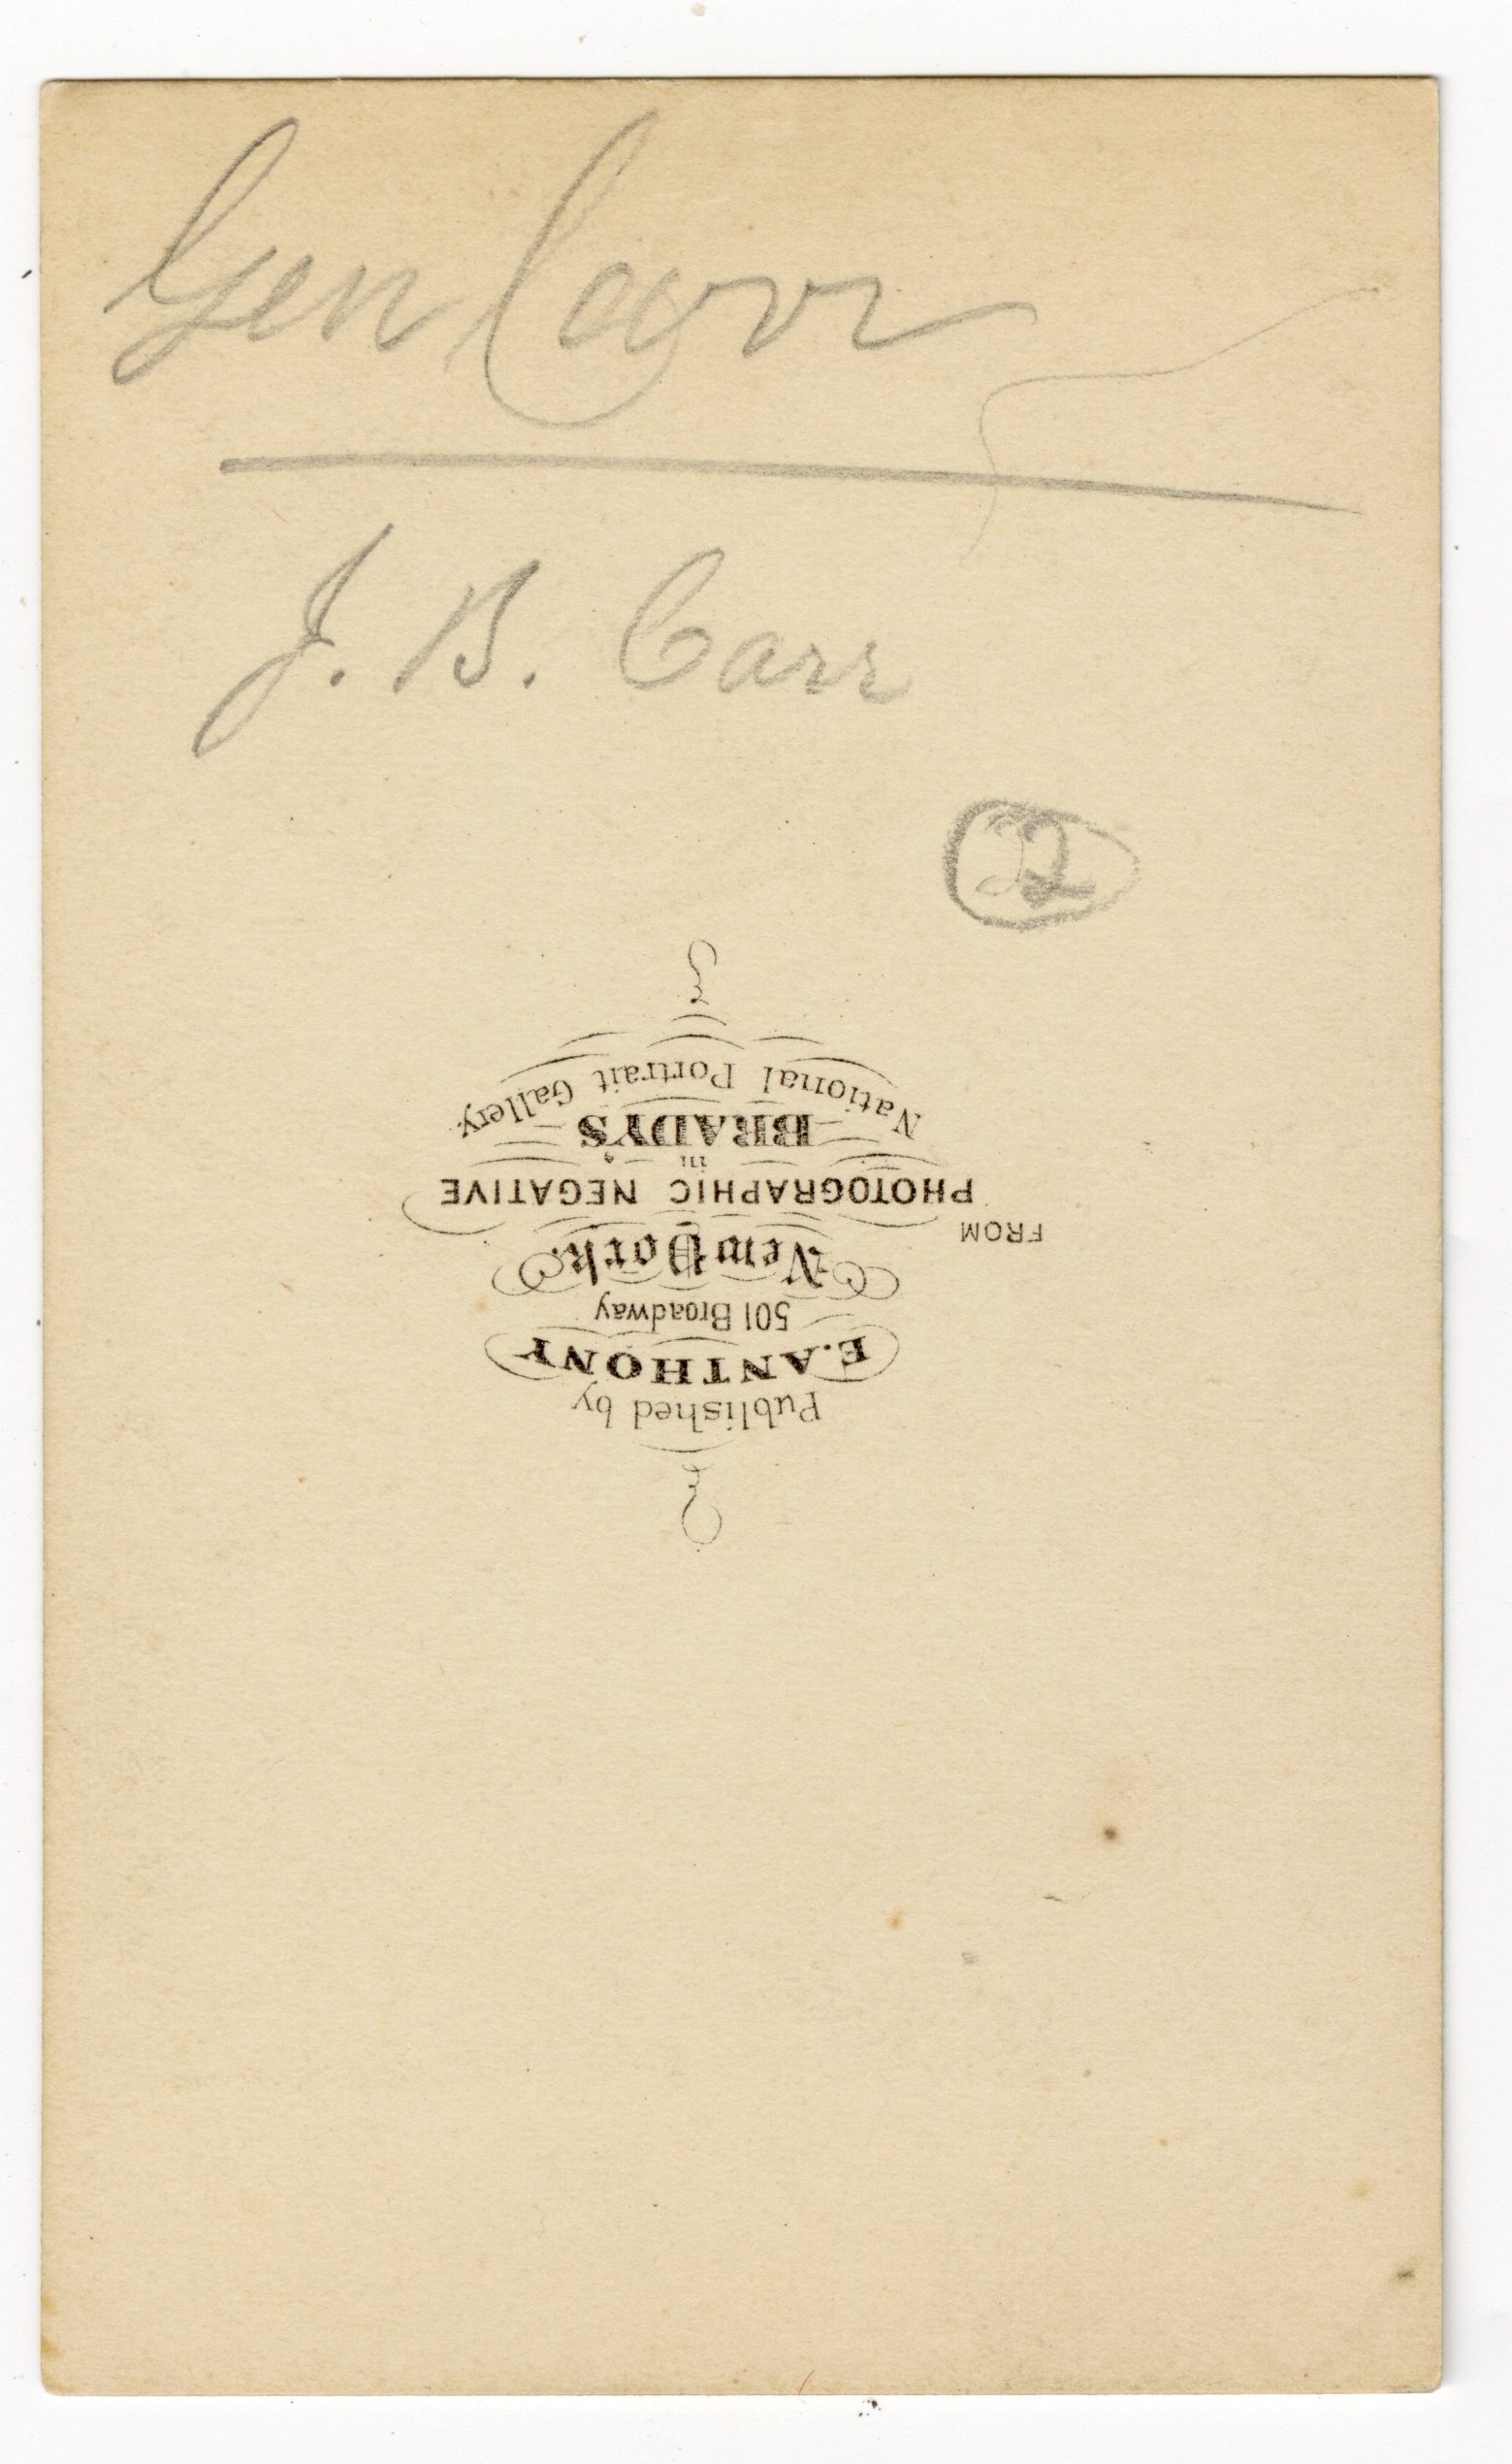 Gen Carr
J. B. Carr
22
Published by
E. ANTHONY
501 Broadway
New York.
FROM
PHOTOGRAPHIC NEGATIVE
in
BRADY'S
National Portrait Gallery.